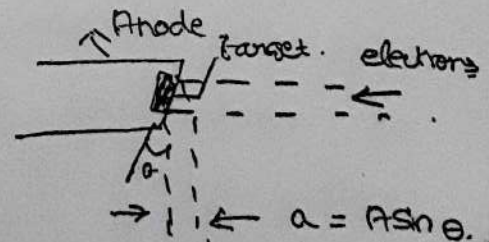 Anode
target.
electrons
θ
a = A sin θ.